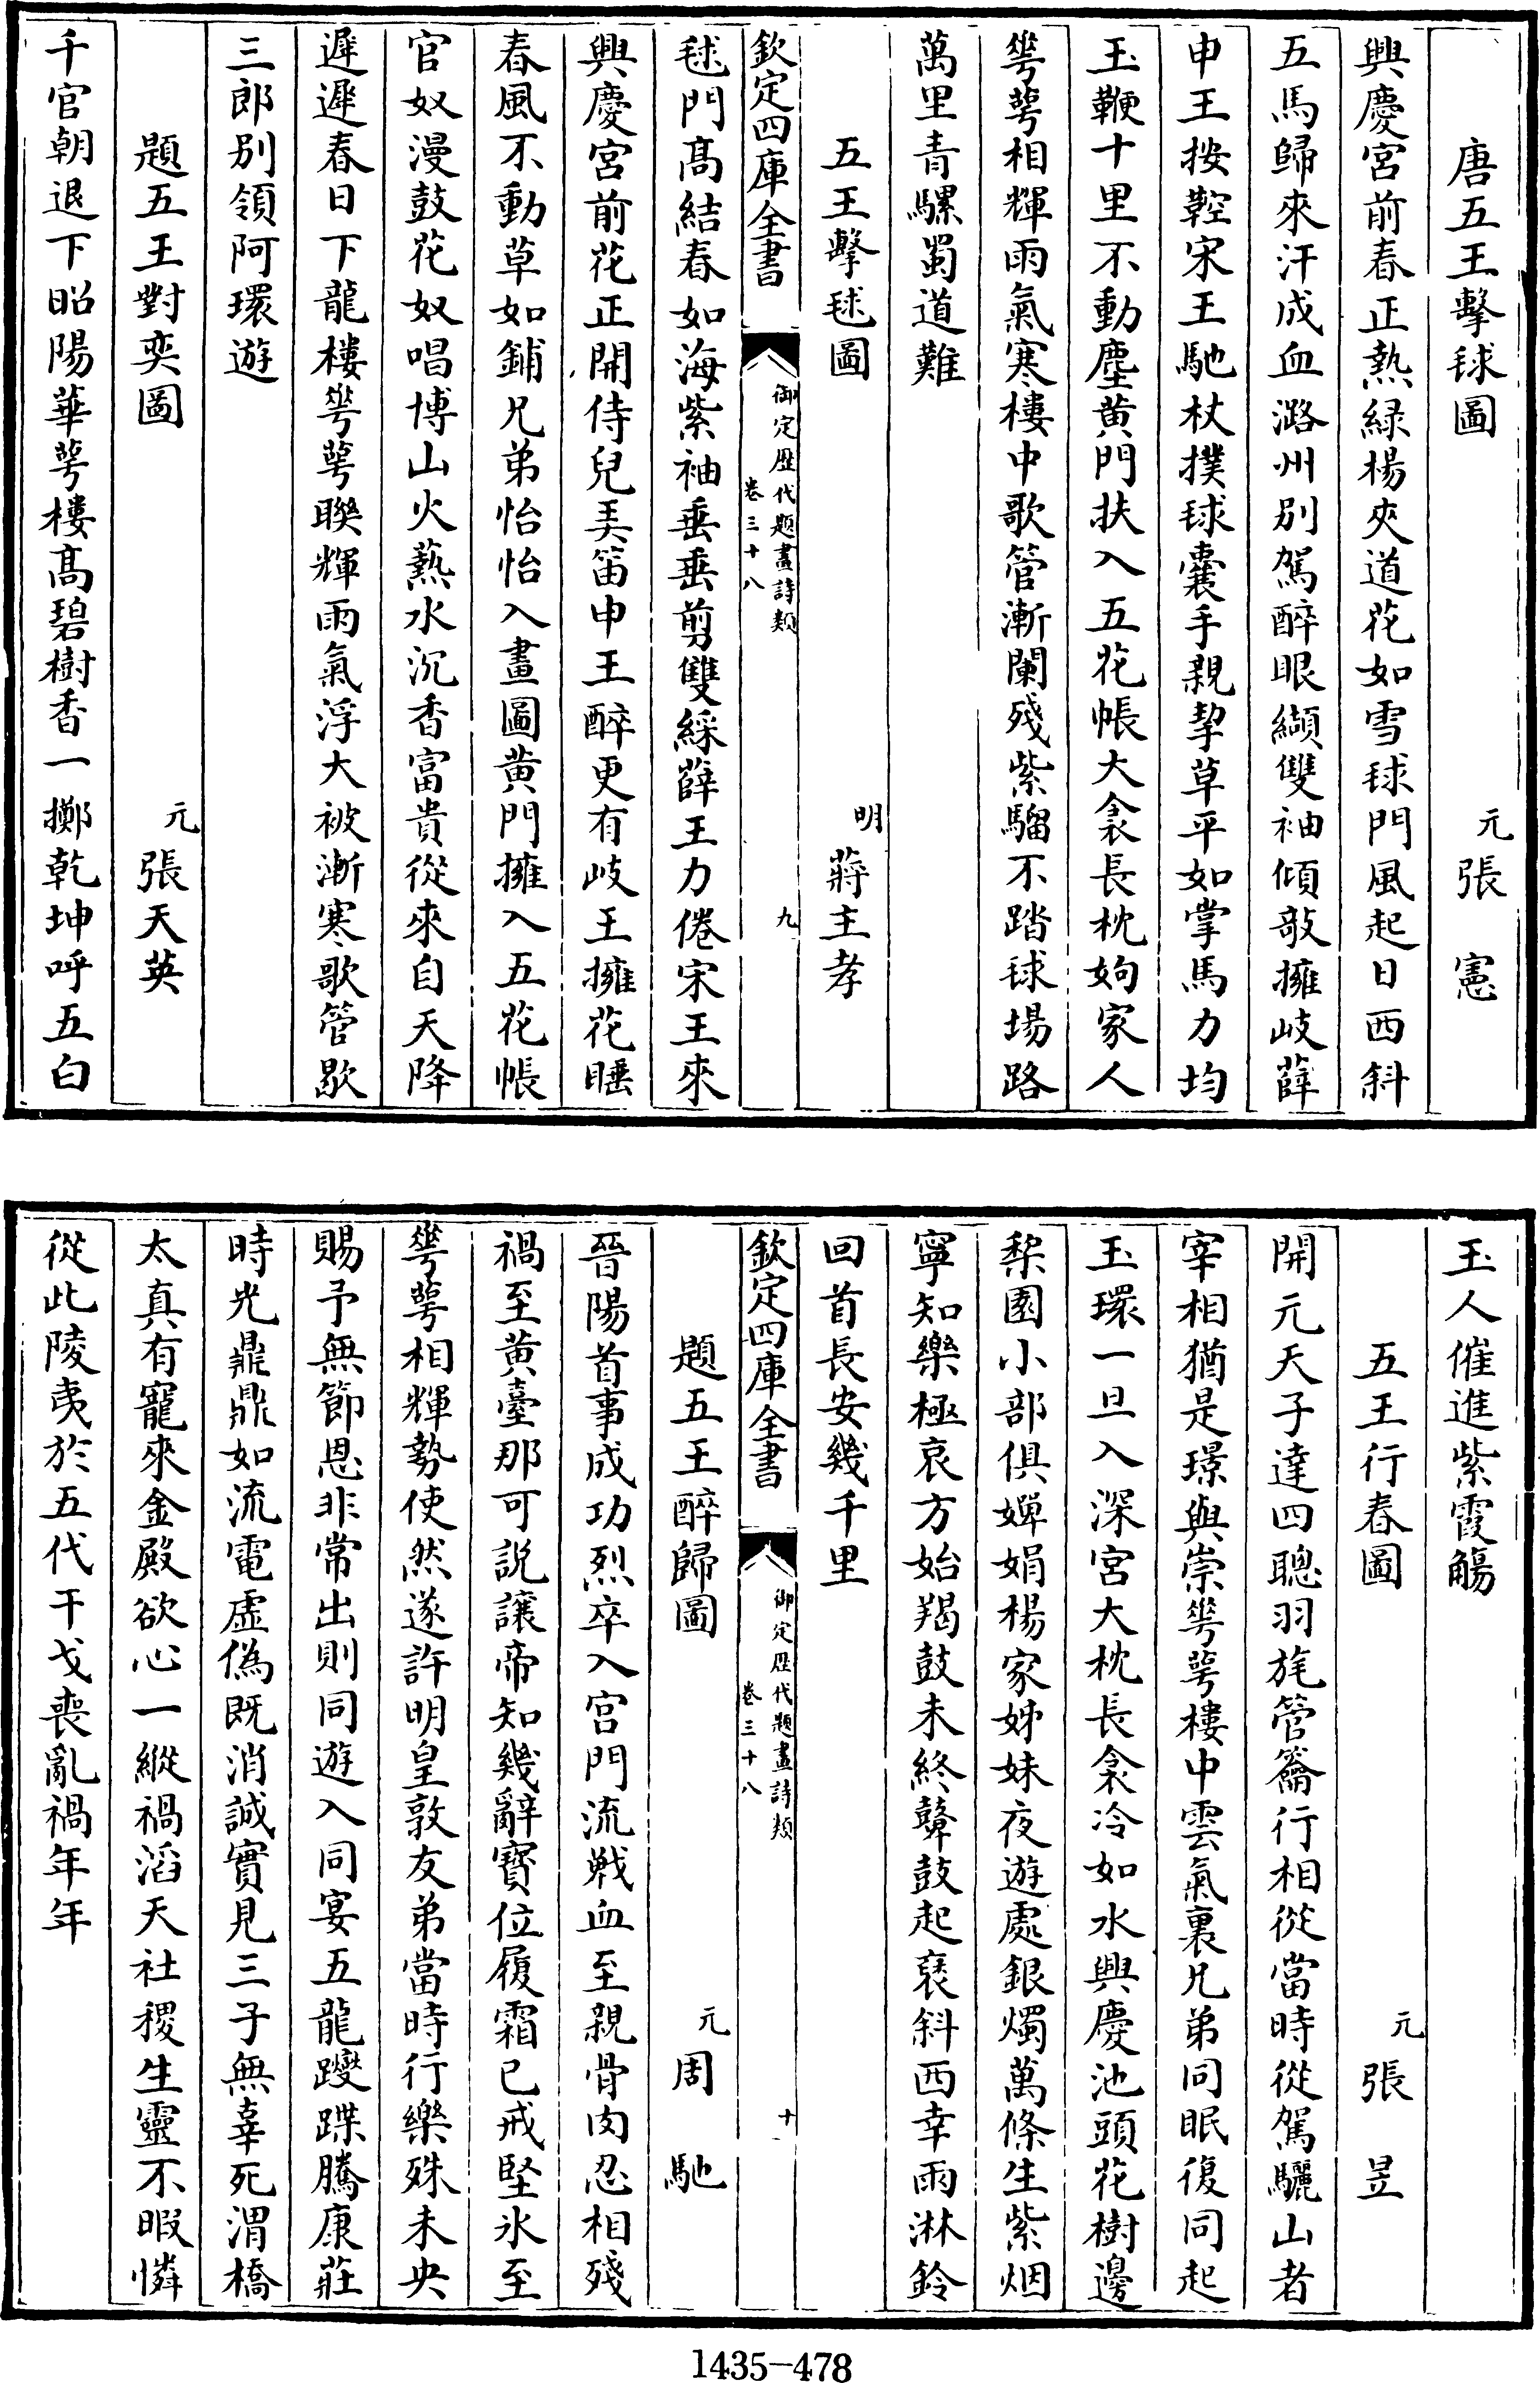 唐五王擊球圖　元張憲
興慶宮前春正熱綠楊夾道花如雪球門風起日西斜
五馬歸來汗成血潞州別駕醉眼纈雙袖傾敧擁岐薛
申王按鞚宋王馳杖撲球囊手親挈草平如掌馬力均
玉鞭十里不動塵黄門扶入五花帳大衾長枕姁家人
萼相輝雨氣寒樓中歌管漸闌殘紫騮不踏球場路
萬里青騾蜀道難
五王擊毬圖　明蔣主孝
欽定四庫全書　御定歴代題畫詩類　卷三十八　九
毬門髙結春如海紫袖垂垂剪雙綵薛王力倦宋王來
興慶宮前花正開侍兒美笛申王醉更有岐王擁花睡
春風不動草如鋪兄弟怡怡入畫圖黄門擁入五花帳
官奴漫鼓花奴唱博山火爇水沉香富貴從來自天降
遲遲春日下龍樓萼聨輝雨氣浮大被漸寒歌管歇
三郎別領阿環遊
題五王對奕圖　元張天英
千官朝退下昭陽華萼樓髙碧樹香一擲乾坤呼五白
玉人催進紫霞觴
五王行春圖　元張昱
開元天子達四聰羽旄管籥行相從當時從駕驪山者
宰相猶是璟與崇萼樓中雲氣裏兄弟同眠復同起
玉環一旦入深宮大枕長衾冷如水興慶池頭花樹邊
棃園小部俱嬋娟楊家姊妹夜遊處銀燭萬條生紫烟
寧知樂極哀方始羯鼓未終鼙鼓起褒斜西幸雨淋鈴
回首長安幾千里
欽定四庫全書　御定歴代題畫詩類　卷三十八　十
題五王醉歸圖　元周馳
晉陽首事成功烈卒入宫門流戰血至親骨肉忍相殘
禍至黄臺那可説讓帝知幾辭寳位履霜已戒堅氷至
萼相輝勢使然遂許明皇敦友弟當時行樂殊未央
賜予無節恩非常出則同遊入同宴五龍躞蹀騰康莊
時光鼎鼎如流電虛偽既消誠實見三子無辜死渭橋
太真有寵來金殿欲心一縱禍滔天社稷生靈不暇憐
從此陵夷於五代干戈喪亂禍年年
1435-478